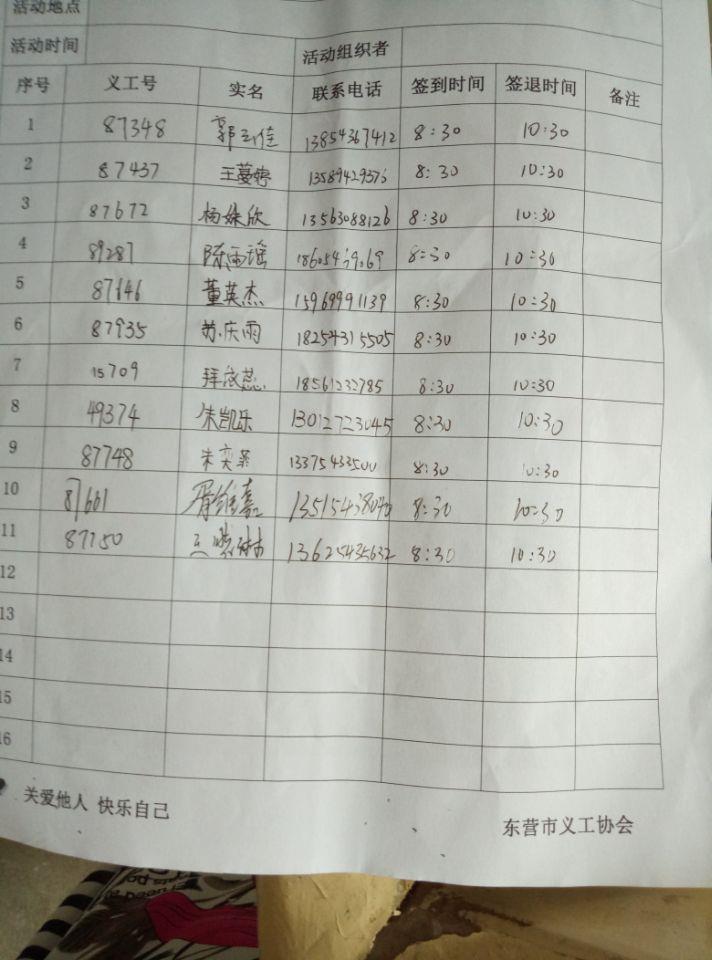 活动地点
活动时间 活动组织者
序号 义工号 实名 联系电话 签到时间 签退时间 备注
1 87348 郭玉佳 13854367412 8:30 10:30
2 87437 王蔓婷 13589429376 8:30 10:30
3 87672 杨姝欣 13563088126 8:30 10:30
4 89287 陈雨瑶 8:30 10:30
5 87646 董英杰 15969991139 8:30 10:30
6 87935 苏庆雨 18254315505 8:30 10:30
7 15709 18561232785 8:30 10:30
8 49374 朱凯乐 13012723045 8:30 10:30
9 87748 朱奕霏 13375433500 8:30 10:30
10 87661 胥维嘉 8:30 10:30
11 87150 王晓琳 13625435632 8:30 10:30
12
13
14
15
16
关爱他人 快乐自己
东营市义工协会